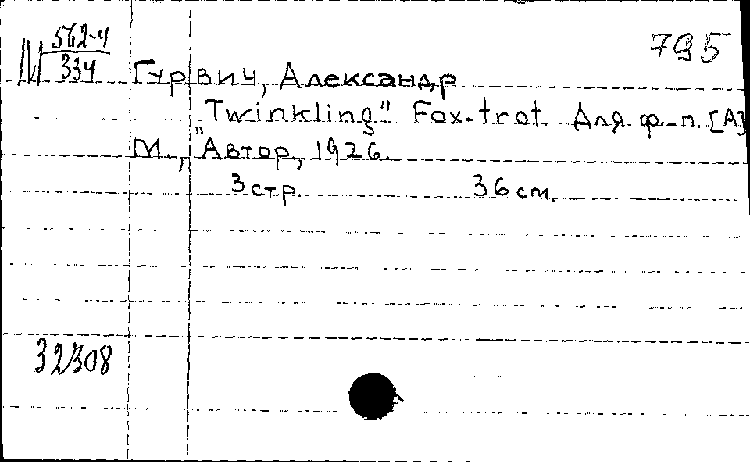 М 562-4
334
795
Гурвич, Александр
"Twinkling" Fox-trot. Для ф-п. [А]
М., "Автор, 1926.
3 стр. 36 см.
32308